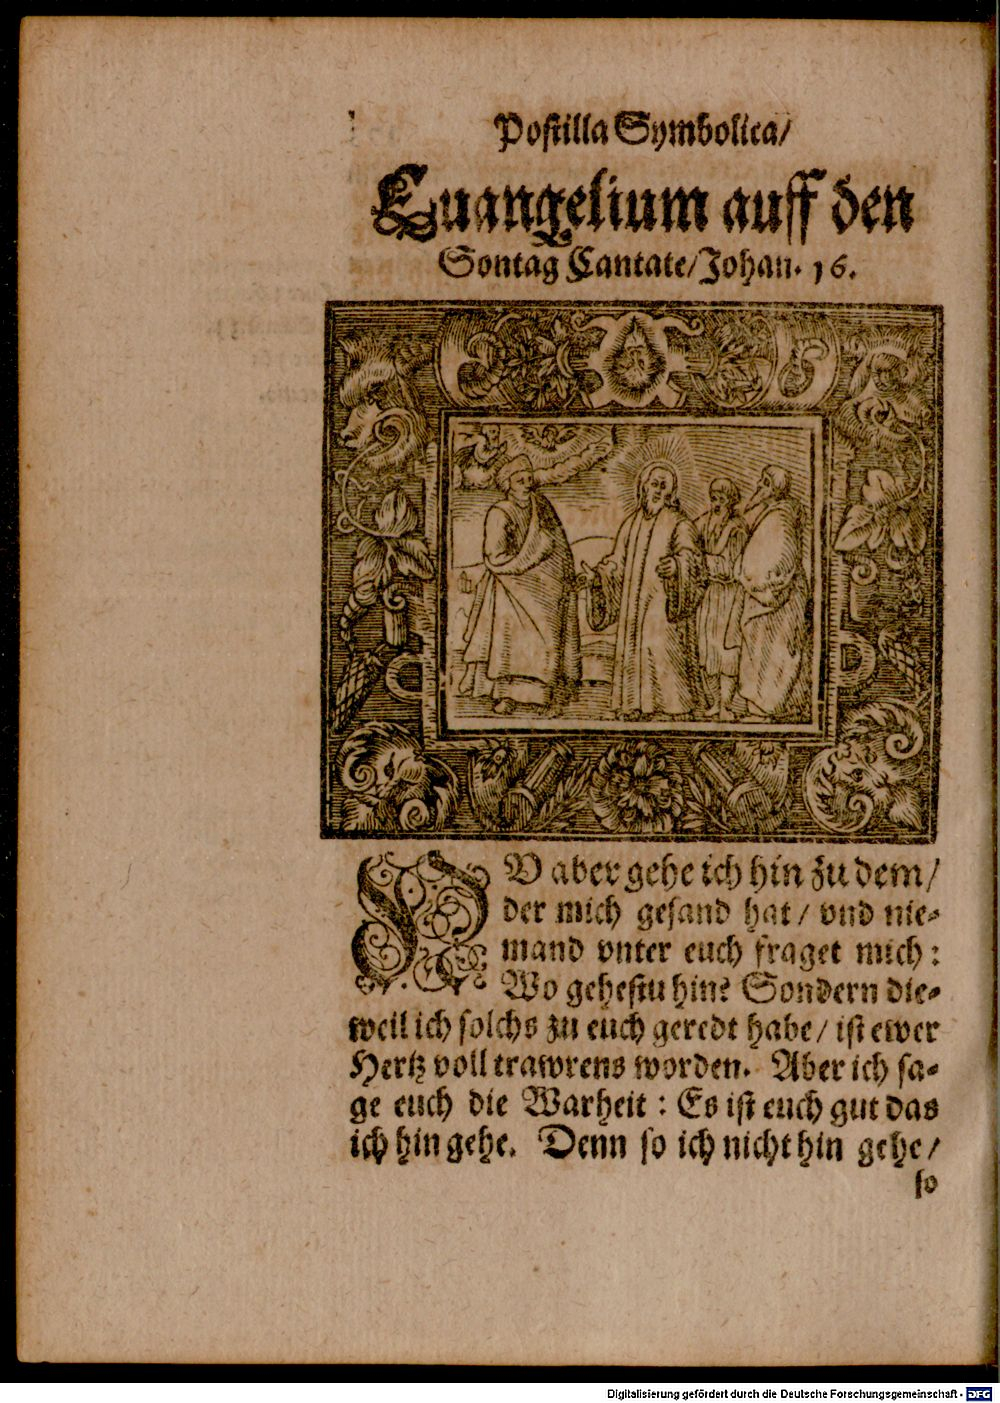 Postilla Symbolica/
Euangelium auff den
Sontag Cantate/Johan. 16.
NV aber gehe ich hin zu dem/
der mich gesand hat/ vnd nie-
mand vnter euch fraget mich:
Wo gehestu hin? Sondern die-
weil ich solchs zu euch geredt habe/ ist ewer
Hertz voll trawrens worden. Aber ich sa-
ge euch die Warheit: Es ist euch gut das
ich hin gehe. Denn so ich nicht hin gehe/
so
Digitalisierung gefördert durch die Deutsche Forschungsgemeinschaft - DFG